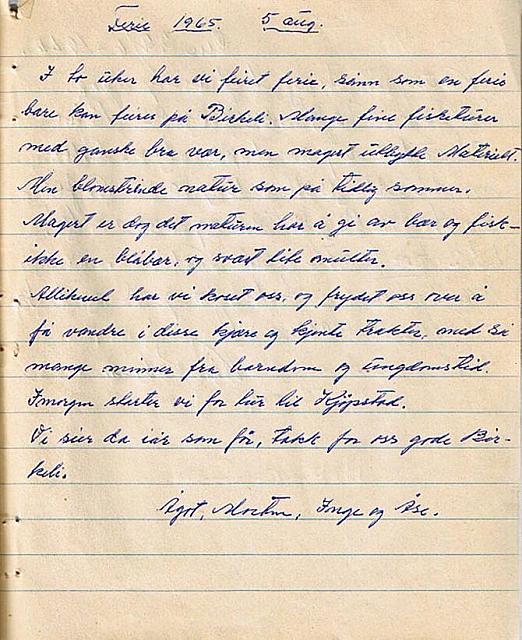 Ferie 1965. 5 aug.
I to uker har vi feiret ferie, sånn som en ferie
bare kan feires på Birkeli. Mange fine fisketurer
med ganske bra vær, men magert utbytte Materielt.
Men blomstrende natur som på tidlig sommer.
Magert er dog det naturen har å gi av bær og fisk –
ikke en blåbær, og svært lite multer.
Allikevel har vi koset oss, og frydet oss over å
få vandre i disse kjære og kjente trakter, med så
mange minner fra barndom og ungdomstid.
Imorgen starter vi for tur til Kjøpstad.
Vi sier da iår som før, takk for oss gode Bir-
keli.
Ågot, Morten, Inge og Åse.